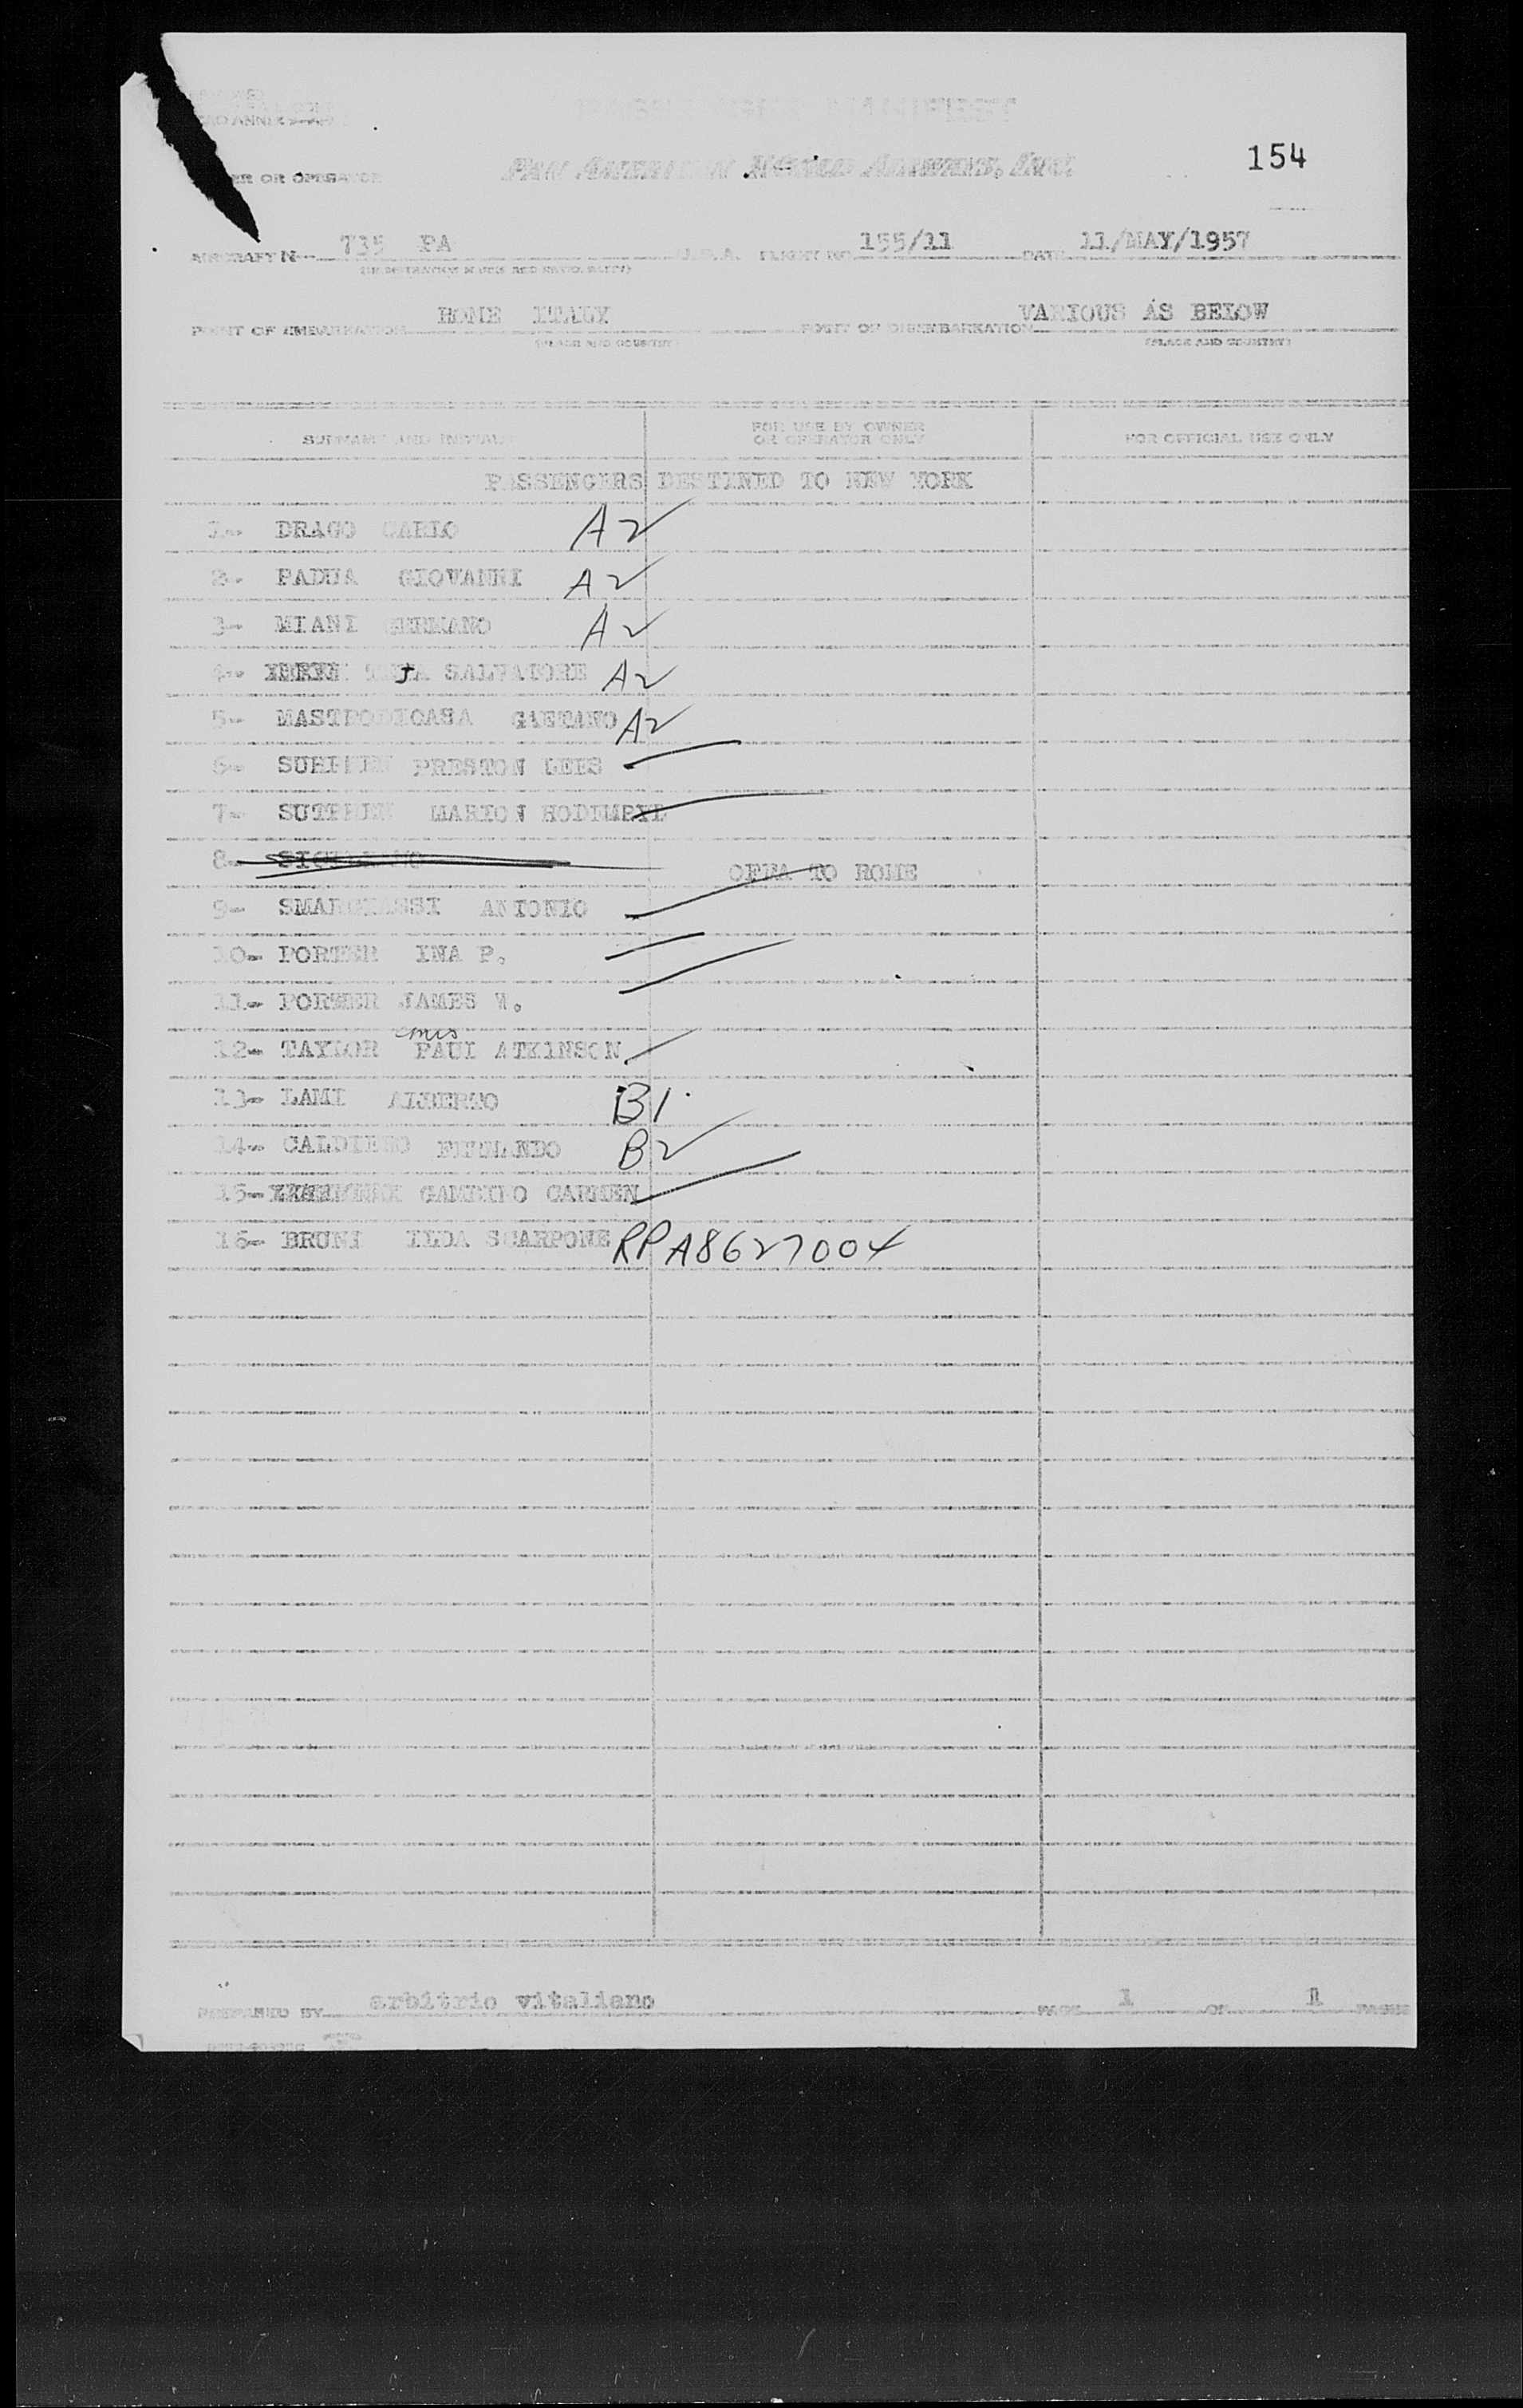 154
PAN AMERICAN WORLD AIRWAYS, INC.
OR OPERATOR
AIRCRAFT N 735 PA U.S.A. FLIGHT NO. 155/11 DATE 11/MAY/1957
POINT OF EMBARKATION ROME ITALY POINT OF DISEMBARKATION VARIOUS AS BELOW
(PLACE AND COUNTRY) (PLACE AND COUNTRY)
SURNAME AND INITIALS FOR USE BY OWNER OR OPERATOR ONLY FOR OFFICIAL USE ONLY
PASSENGERS DESTINED TO NEW YORK
1- DRAGO CARLO A2
2- PADUA GIOVANNI A2
3- MIANI GERMANO A2
4- SALVATORE A2
5- MASTRODICASA GAETANO A2
6- PRESTON LEES
7- SUTPHEN MARION
8-
TO ROME
9- SMARGIASSI ANTONIO
10- PORTER INA P.
11- PORTER JAMES W.
12- TAYLOR PAUL ATKINSON
13- LAMI ALBERTO B1
14- B2
15- GAMBINO CARMEN
16- BRUNI ILDA SCARPONE RPA8627004
PREPARED BY arbitrio vitaliano PAGE 1 OF 1 PAGES